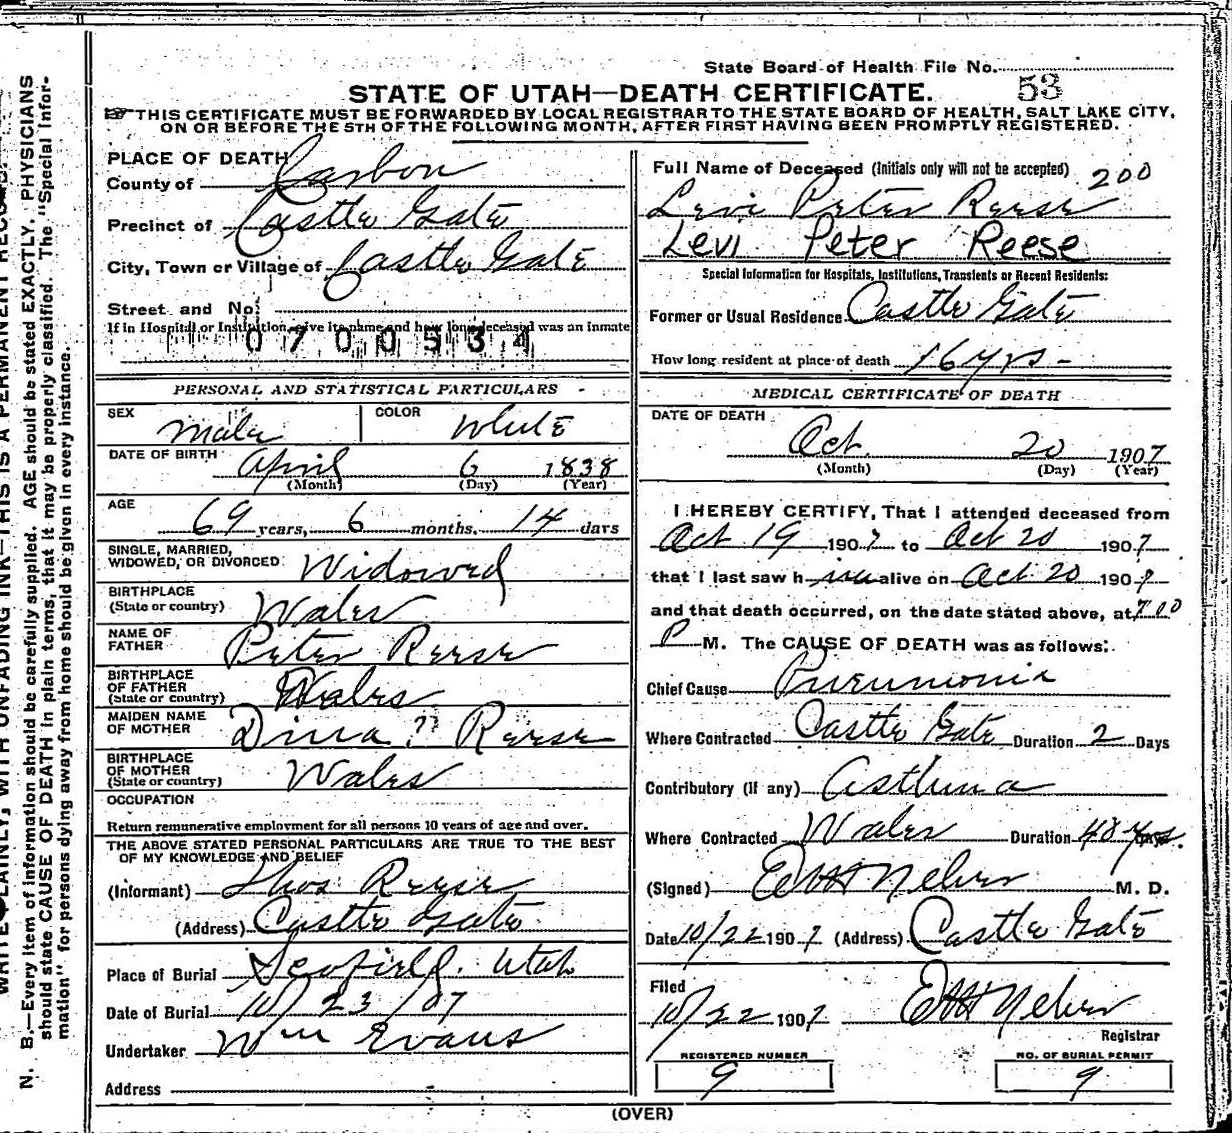 State Board of Health File No. 53
STATE OF UTAH—DEATH CERTIFICATE.
THIS CERTIFICATE MUST BE FORWARDED BY LOCAL REGISTRAR TO THE STATE BOARD OF HEALTH, SALT LAKE CITY,
ON OR BEFORE THE 5TH OF THE FOLLOWING MONTH, AFTER FIRST HAVING BEEN PROMPTLY REGISTERED.
PLACE OF DEATH
County of Carbon
Precinct of Castle Gate
City, Town or Village of Castle Gate
Street and No.
If in Hospital or Institution, give its name and how long deceased was an inmate
0700534
PERSONAL AND STATISTICAL PARTICULARS
SEX Male COLOR White
DATE OF BIRTH April 6 1838
(Month) (Day) (Year)
AGE
69 years, 6 months, 14 days
SINGLE, MARRIED,
WIDOWED, OR DIVORCED Widowed
BIRTHPLACE
(State or country) Wales
NAME OF
FATHER Peter Reese
BIRTHPLACE
OF FATHER
(State or country) Wales
MAIDEN NAME
OF MOTHER Dina ?? Reese
BIRTHPLACE
OF MOTHER
(State or country) Wales
OCCUPATION
Return remunerative employment for all persons 10 years of age and over.
THE ABOVE STATED PERSONAL PARTICULARS ARE TRUE TO THE BEST
OF MY KNOWLEDGE AND BELIEF
(Informant) Thos Reese
(Address) Castle Gate
Place of Burial Scofield. Utah
Date of Burial 10/23/07
Undertaker Wm Evans
Address
Full Name of Deceased (Initials only will not be accepted) 200
Levi Peter Reese
Levi Peter Reese
Special Information for Hospitals, Institutions, Transients or Recent Residents:
Former or Usual Residence Castle Gate
How long resident at place of death 16 yrs-
MEDICAL CERTIFICATE OF DEATH
DATE OF DEATH
Oct. 20 1907
(Month) (Day) (Year)
I HEREBY CERTIFY, That I attended deceased from
Oct 19 1907 to Oct 20 1907
that I last saw him alive on Oct. 20 1907
and that death occurred, on the date stated above, at 7:00
P M. The CAUSE OF DEATH was as follows:
Chief Cause Pneumonia
Where Contracted Castle Gate Duration 2 Days
Contributory (If any) Asthma
Where Contracted Wales Duration 48 yrs.
(Signed) M. D.
Date 10/22 1907 (Address) Castle Gate
Filed
10/22 1907
Registrar
REGISTERED NUMBER
9
NO. OF BURIAL PERMIT
9
(OVER)
N. B.—Every item of information should be carefully supplied. AGE should be stated EXACTLY. PHYSICIANS
should state CAUSE OF DEATH in plain terms, that it may be properly classified. The "Special Infor-
mation" for persons dying away from home should be given in every instance.